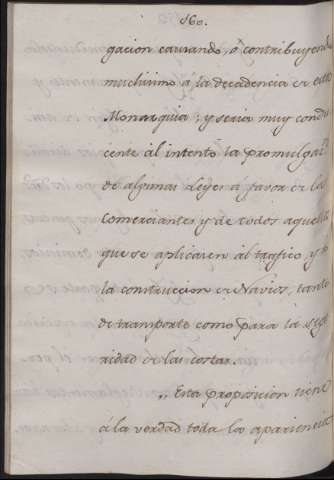 160.
gacion causando, ó contribuyendo
muchisimo á la decadencia de esta
Monarquia; y seria muy condu
cente al intento la promulgac.ⁿ
de algunas Leyes á favor de los
Comerciantes y de todos aquellos
que se aplicasen al trafico, y á
la construccion de Navios, tanto
de transporte como para la segu
ridad de las costas.
,, Esta proposicion tiene
á la verdad toda la apariencia